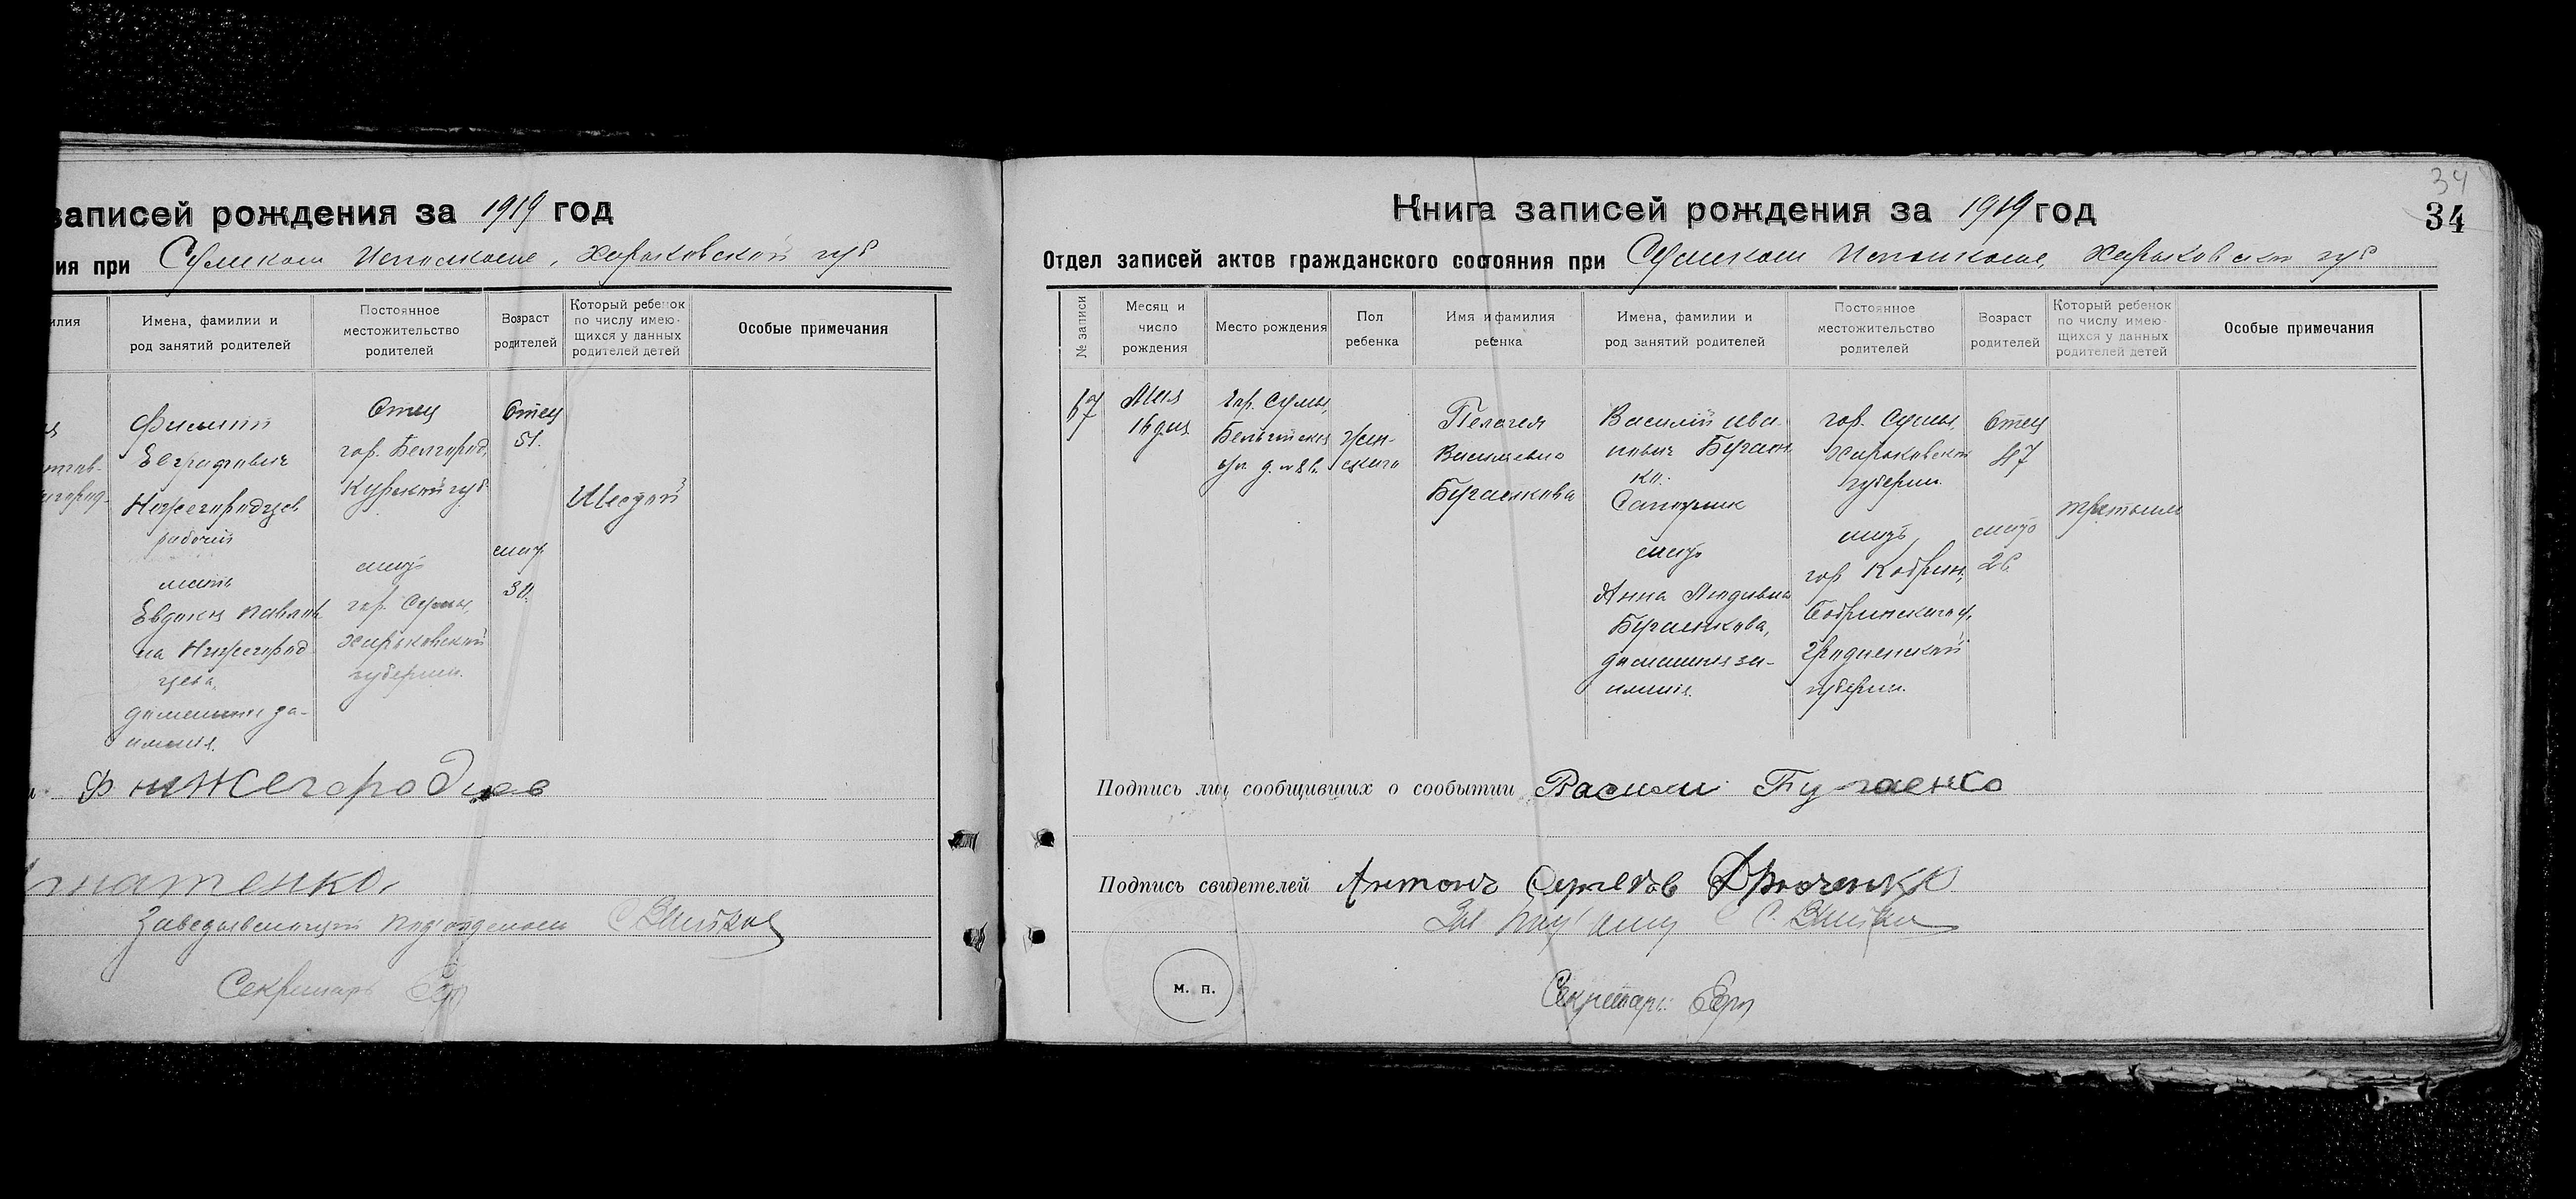 записей рождения за 1919 год
ия при Сумском Исполкоме, Харьковской губ
илия
Имена, фамилии и род занятий родителей
Постоянное местожительство родителей
Возраст родителей
Который ребенок по числу имею-щихся у данных родителей детей
Особые примечания
Филипп
Евграфович
Нижегородцев
рабочий
мать
Евдокия Павлов
на Нижегород
цева,
домашния за-
нятия.
Отец
гор. Белгород,
Курской губ.
мать
гор. Сумы,
Харьковской
губернии.
Отец
51.
мать
30.
Шестой
Ф нижегородцев
гнатенко,
Заведывающий Подотделом
Секретарь
34
Книга записей рождения за 1919 год
34
Отдел записей актов гражданского состояния при Сумском Исполкоме, Харьковской губ
№ записи
Месяц и число рождения
Место рождения
Пол ребенка
Имя и фамилия ребенка
Имена, фамилии и род занятий родителей
Постоянное местожительство родителей
Возраст родителей
Который ребенок по числу имею-щихся у данных родителей детей
Особые примечания
67
Мая
16 дня
Гор. Сумы,
Бельгийская
ул. д. № 86.
Жен-
ского
Пелагея
Васильевна
Бугаенкова
Василий Ива
нович Бугаен
ко.
Сапожник
мать
Анна
Бугаенкова,
домашния за-
нятия.
гор. Сумы,
Харьковской
губернии.
мать
гор Кобрин,
Кобринского у,
Гродненской
губернии.
Отец
47
мать
26
третьим
Подпись лиц сообщивших о событии Васили Бугаенко
Подпись свидетелей Антонъ
Зав.
м. п.
Секретарь